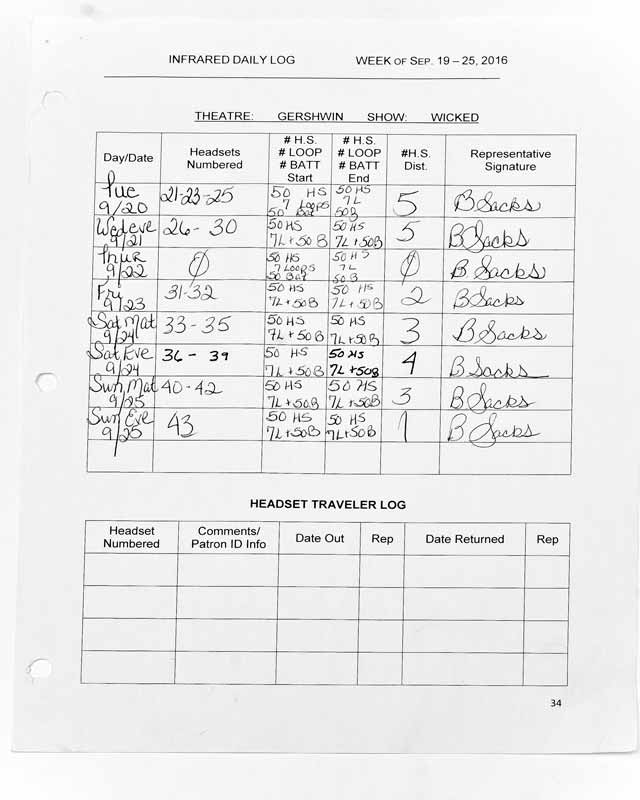 INFRARED DAILY LOG WEEK OF SEP. 19 – 25, 2016
THEATRE: GERSHWIN SHOW: WICKED
Day/Date Headsets Numbered # H.S. # LOOP # BATT Start # H.S. # LOOP # BATT End #H.S. Dist. Representative Signature
Tue 9/20 21-23-25 50 HS 7 Loops 50 Bat 50 HS 7L 50B 5 B Sacks
Wed eve 9/21 26 - 30 50 HS 7L + 50 B 50 HS 7L + 50B 5 B Sacks
Thur 9/22 Ø 50 HS 7 LOOPS 50 Bat 50 HS 7L 50B Ø B Sacks
Fri 9/23 31-32 50 HS 7L + 50B 50 HS 7L + 50B 2 B Sacks
Sat Mat 9/24 33 - 35 50 HS 7L + 50B 50 HS 7L + 50B 3 B Sacks
Sat Eve 9/24 36 - 39 50 HS 7L + 50B 50 HS 7L + 50B 4 B Sacks
Sun Mat 9/25 40 - 42 50 HS 7L + 50B 50 HS 7L + 50B 3 B Sacks
Sun Eve 9/25 43 50 HS 7L + 50B 50 HS 7L + 50B 1 B Sacks
HEADSET TRAVELER LOG
Headset Numbered Comments/ Patron ID Info Date Out Rep Date Returned Rep
34